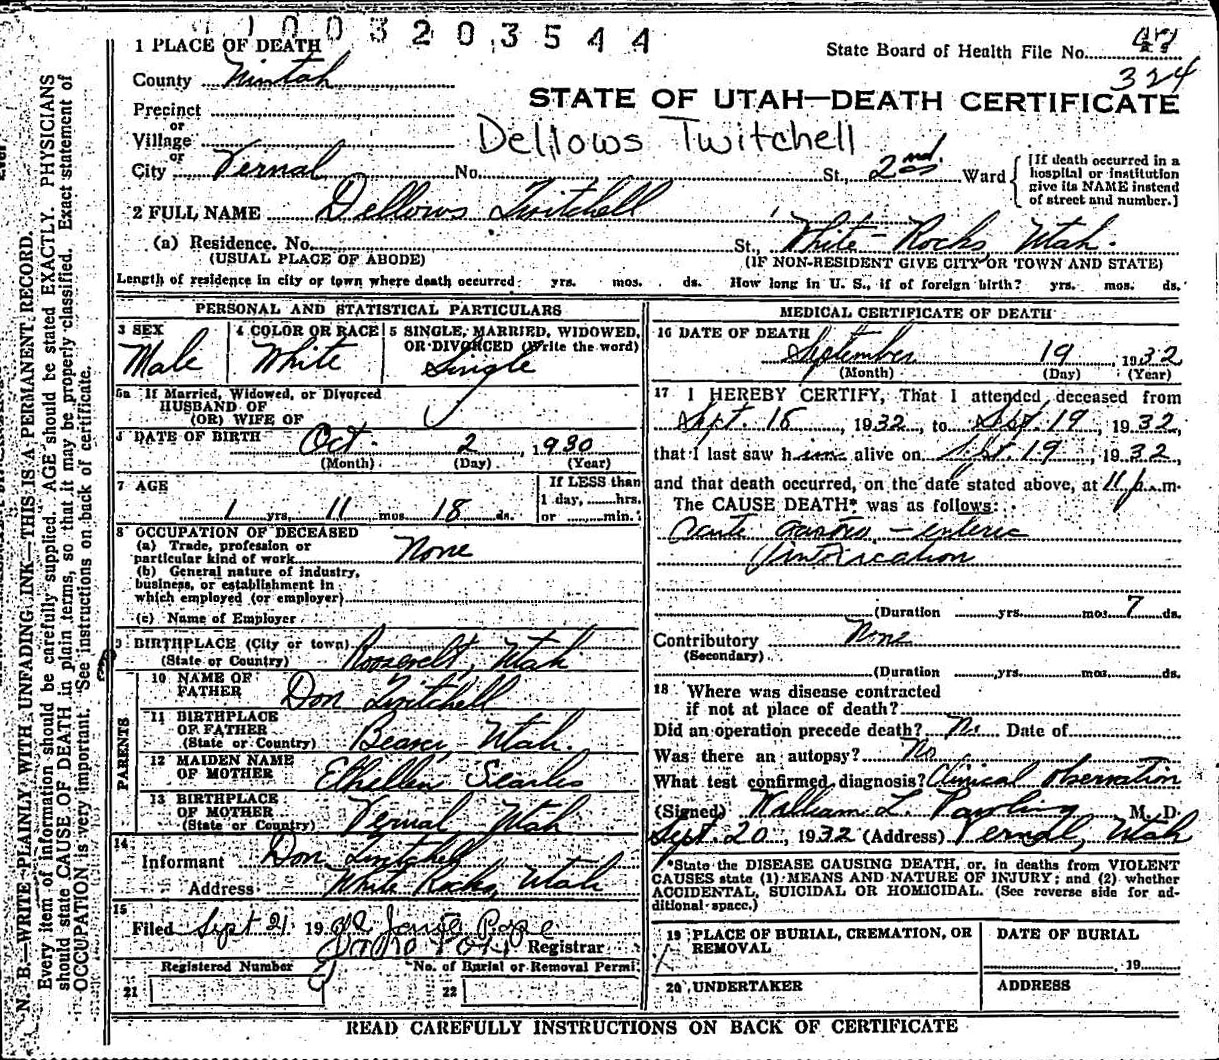 1 0 0 3 2 0 3 5 4 4
1 PLACE OF DEATH
State Board of Health File No.
324
County Uintah
STATE OF UTAH—DEATH CERTIFICATE
Precinct
or
Village
Dellows Twitchell
or
City Vernal No. St., 2nd. Ward
[If death occurred in a hospital or institution give its NAME instead of street and number.]
2 FULL NAME Dellows Twitchell
(a) Residence. No. St., White Rocks, Utah.
(USUAL PLACE OF ABODE) (IF NON-RESIDENT GIVE CITY OR TOWN AND STATE)
Length of residence in city or town where death occurred yrs. mos. ds. How long in U. S., if of foreign birth? yrs. mos. ds.
PERSONAL AND STATISTICAL PARTICULARS
3 SEX
Male
4 COLOR OR RACE
White
5 SINGLE, MARRIED, WIDOWED,
OR DIVORCED (Write the word)
Single
5a If Married, Widowed, or Divorced
HUSBAND OF
(OR) WIFE OF
DATE OF BIRTH Oct. 2, 1930
(Month) (Day) (Year)
7 AGE
1 yrs. 11 mos. 18 ds.
If LESS than
1 day, hrs.
or min.
8 OCCUPATION OF DECEASED
(a) Trade, profession or
particular kind of work None
(b) General nature of industry,
business, or establishment in
which employed (or employer)
(c) Name of Employer
9 BIRTHPLACE (City or town)
(State or Country) Roosevelt, Utah
PARENTS
10 NAME OF
FATHER Don Twitchell
11 BIRTHPLACE
OF FATHER
(State or Country) Beaver, Utah.
12 MAIDEN NAME
OF MOTHER Ethellen Searles
13 BIRTHPLACE
OF MOTHER
(State or Country) Vernal Utah
14
Informant Don Twitchell
Address White Rocks, Utah
15
Filed Sept 21 19
Registrar
Registered Number No. of Burial or Removal Permit
21 22
MEDICAL CERTIFICATE OF DEATH
16 DATE OF DEATH
September 19 1932
(Month) (Day) (Year)
17 I HEREBY CERTIFY, That I attended deceased from
Sept. 18, 1932, to Sept. 19, 1932,
that I last saw him alive on Sept. 19, 1932,
and that death occurred, on the date stated above, at 11 p.m.
The CAUSE DEATH* was as follows:
Acute Gastro-enteric
intoxication
(Duration yrs. mos. 7 ds.
Contributory None
(Secondary)
(Duration yrs. mos. ds.
18 Where was disease contracted
if not at place of death?
Did an operation precede death? No Date of
Was there an autopsy? No
What test confirmed diagnosis? Clinical observation
(Signed) William L. M. D.
Sept 20, 1932 (Address) Vernal, Utah
*State the DISEASE CAUSING DEATH, or, in deaths from VIOLENT
CAUSES state (1) MEANS AND NATURE OF INJURY; and (2) whether
ACCIDENTAL, SUICIDAL OR HOMICIDAL. (See reverse side for ad-
ditional space.)
19 PLACE OF BURIAL, CREMATION, OR
REMOVAL
DATE OF BURIAL
, 19
20 UNDERTAKER
ADDRESS
READ CAREFULLY INSTRUCTIONS ON BACK OF CERTIFICATE
N. B.—WRITE PLAINLY WITH UNFADING INK—THIS IS A PERMANENT RECORD.
Every item of information should be carefully supplied. AGE should be stated EXACTLY. PHYSICIANS
should state CAUSE OF DEATH in plain terms, so that it may be properly classified. Exact statement of
OCCUPATION is very important. See instructions on back of certificate.